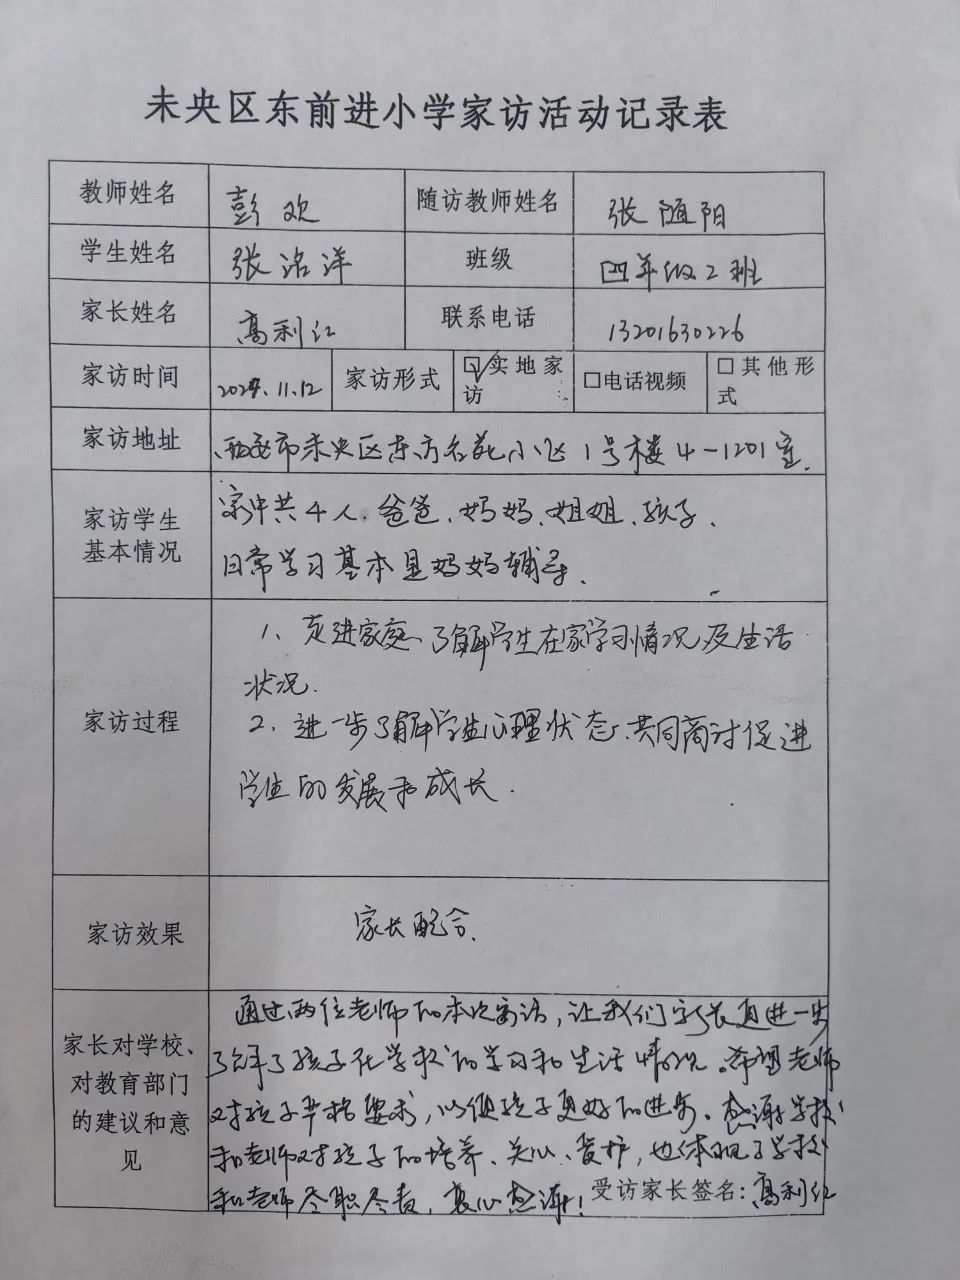 未央区东前进小学家访活动记录表
教师姓名 彭欢 随访教师姓名 张随阳
学生姓名 张洺洋 班级 四年级2班
家长姓名 高利红 联系电话 13201630226
家访时间 2024.11.12 家访形式 ☑实地家访 □电话视频 □其他形式
家访地址 西安市未央区东方名苑小区1号楼4-1201室.
家访学生
基本情况
家中共4人.爸爸、妈妈、姐姐、孩子.
日常学习基本是妈妈辅导.
家访过程
1、走进家庭、了解学生在家学习情况及生活
状况.
2、进一步了解学生心理状态、共同商讨促进
学生的发展和成长.
家访效果
家长配合.
家长对学校、
对教育部门
的建议和意
见
通过两位老师的本次家访,让我们家长更进一步
了解了孩子在学校的学习和生活情况。希望老师
对孩子严格要求,以便孩子更好的进步。感谢学校
和老师对孩子的培养、关心、爱护,也体现了学校
和老师尽职尽责,衷心感谢!
受访家长签名:高利红